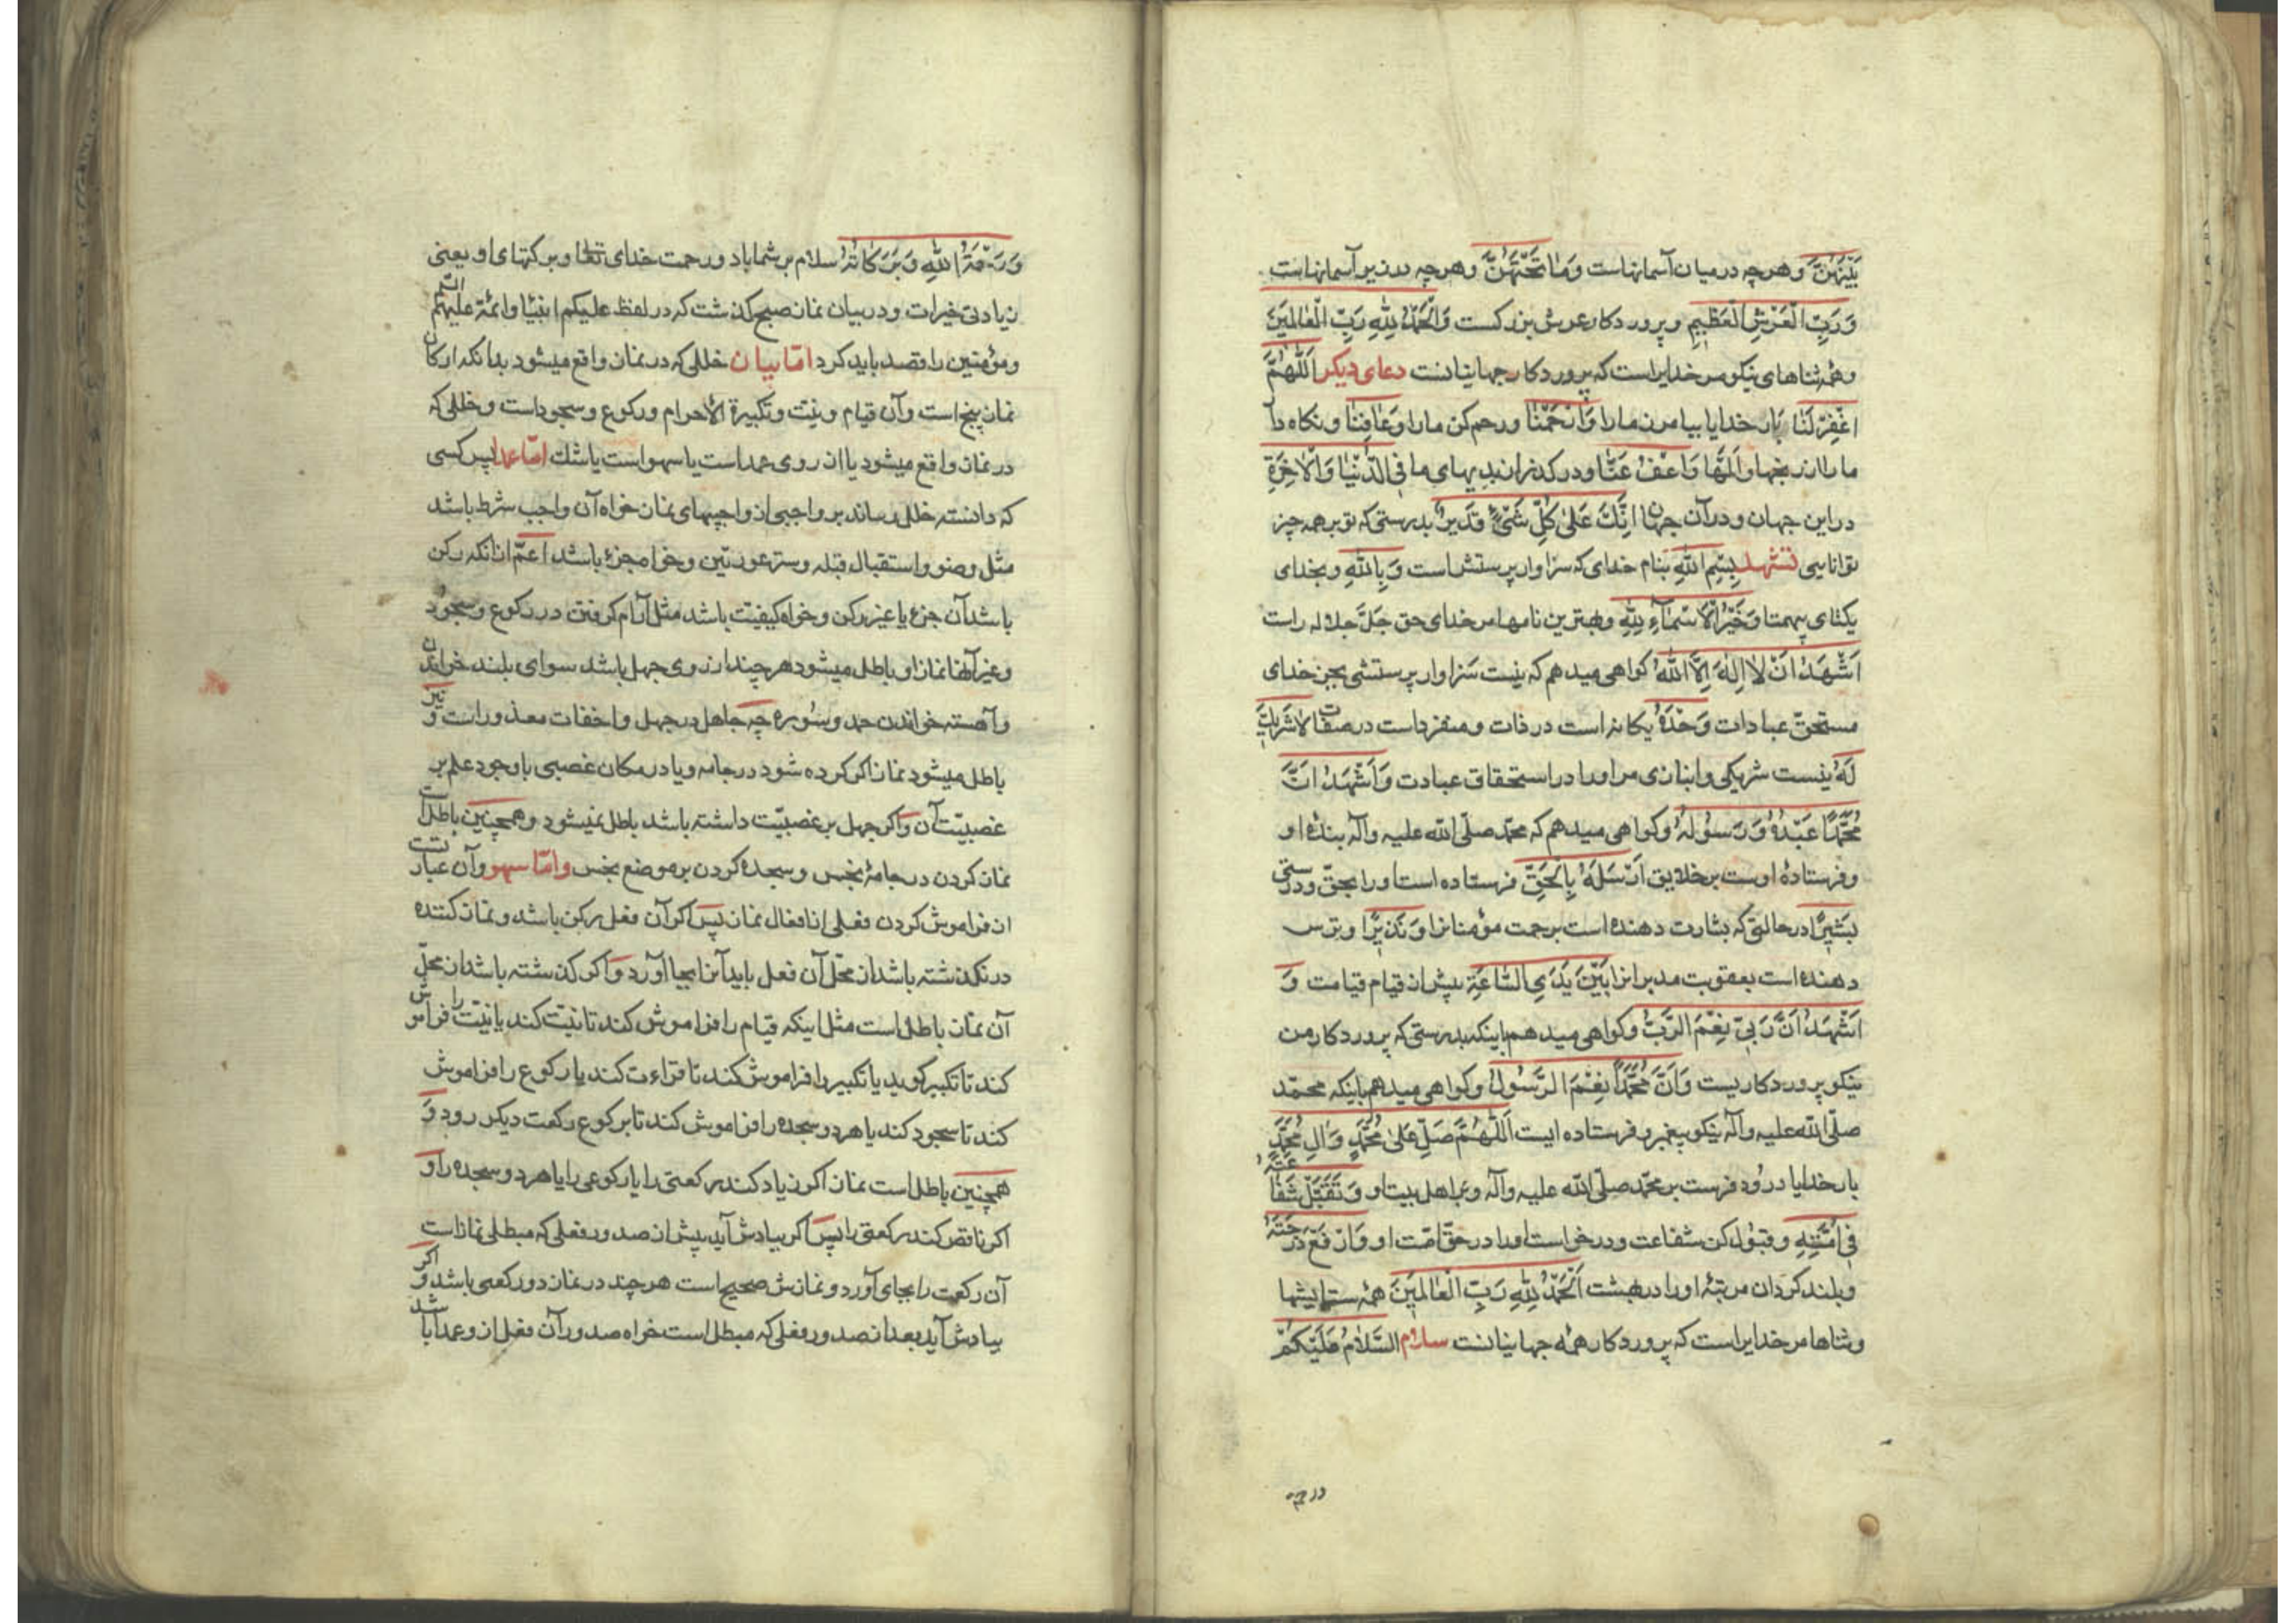 بَيْنَهُنَّ وهرچه درمیان آسمانهاست وَمٰا تَحْتَهُنَّ وهرچه درزیر آسمانهاست
وَرَبِّ الْعَرْشِ الْعَظیٖمِ وپروردکار عرش بزرکست وَالْحَمْدُ لِلّٰهِ رَبِّ الْعٰالَمیٖنَ
وهمه ثناهای نیکو مر خدایراست که پروردکار جهانیانست دعای دیکر اَللّٰهُمَّ
اغْفِرْ لَنٰا بار خدایا بیامرز مارا وَارْحَمْنٰا ورحم کن مارا وَعٰافِنٰا ونکاه دا
مارا از رنجها والمها وَاعْفُ عَنّٰا ودرکذر از بدیهای ما فِی الدُّنْیٰا وَالْاٰخِرَةِ
دراین جهان ودرآن جهان اِنَّكَ عَلىٰ كُلِّ شَیْءٍ قَدیٖرٌ بدرستی که تو برهمه چیز
توانایی تشهد بِسْمِ اللّٰهِ بنام خدای که سزاوار پرستش است وَبِاللّٰهِ وبخدای
یکتای بیهمتا وَخَیْرُ الْاَسْمٰآءِ لِلّٰهِ وبهترین نامها مر خدای حق جَلَّ جلاله راست
اَشْهَدُ اَنْ لٰا اِلٰهَ اِلَّا اللّٰهُ کواهی میدهم که نیست سزاوار پرستشی بجز خدای
مستحقّ عبادات وَحْدَهُ یکانه است در ذات ومنفرداست درصفات لٰا شَریٖكَ
لَهُ نیست شریکی وانبازی مر اورا در استحقاق عبادت وَاَشْهَدُ اَنَّ
مُحَمَّدًا عَبْدُهُ وَرَسُولُهُ وکواهی میدهم که محمّد صلّی الله علیه وآله بندهٔ او
وفرستادهٔ اوست برخلایق اَرْسَلَهُ بِالْحَقِّ فرستاده است اورا بحقّ ودرستی
بَشیٖرًا درحالتی که بشارت دهنده است برحمت مؤمنانرا وَنَذیٖرًا وترس
دهنده است بعقوبت مدبرانرا بَیْنَ یَدَیِ السّٰاعَةِ پیش از قیام قیامت وَ
اَشْهَدُ اَنَّ رَبّیٖ نِعْمَ الرَّبُّ وکواهی میدهم باینکه بدرستی که پروردکار من
نیکو پروردکاریست وَاَنَّ مُحَمَّدًا نِعْمَ الرَّسُولُ وکواهی میدهم باینکه محمّد
صلّی الله علیه وآله نیکو پیغمبر وفرستاده ایست اَللّٰهُمَّ صَلِّ عَلىٰ مُحَمَّدٍ وَاٰلِ مُحَمَّدٍ
بار خدایا درُود فرست بر محمّد صلّی الله علیه وآله وبراهل بیت او وَتَقَبَّلْ شَفٰاعَتَهُ
فیٖ اُمَّتِهِ وقبول کن شفاعت ودرخواست اورا درحقّ امّت او وَارْفَعْ دَرَجَتَهُ
وبلند کردان مرتبهٔ اورا دربهشت اَلْحَمْدُ لِلّٰهِ رَبِّ الْعٰالَمیٖنَ همه ستایشها
وثناها مر خدایراست که پروردکار همه جهانیانست سلام السَّلٰامُ عَلَیْكُمْ
وَرَحْمَةُ اللّٰهِ وَبَرَكٰاتُهُ سلام برشماباد ورحمت خدای تعالی وبرکتهای او یعنی
زیادتی خیرات ودربیان نماز صبح کذشت که درلفظ علیکم انبیٰا وائمّهٔ علیهم السّم
ومؤمنین را قصد باید کرد امّا بیان خللی که درنماز واقع میشود بدانکه ارکان
نماز پنج است وآن قیام ونیّت وتکبیرة الاحرام ورکوع وسجوداست وخللی که
درنماز واقع میشود یا از روی عمداست یا سهواست یا شك امّا عمدا پس کسی
که دانسته خلل رساند بر واجبی از واجبهای نماز خواه آن واجب شرط باشد
مثل وضو واستقبال قبله وستر عورتین وخواه جزء باشد اعمّ ازانکه رکن
باشد آن جزء یا غیر رکن وخواه کیفیّت باشد مثل آرام کرفتن در رکوع وسجود
وغیر آنها نماز او باطل میشود هرچند از روی جهل باشد سوای بلند خواندن
وآهسته خواندن حمد وسُوره چه جاهل درجهل واخفات معذوراست وَنیز
باطل میشود نماز اکر کرده شود درجامه ویا درمکان غصبی باوجود علم بر
غصبیّت آن وَاکر جهل برغصبیّت داشته باشد باطل نمیشود وهمچنین باطلست
نماز کردن درجامهٔ نجس وسجده کردن برموضع نجس وامّا سهو وآن عبارتست
از فراموش کردن فعلی از افعال نماز پس اکر آن فعل رکن باشد ونماز کننده
درنکذشته باشد از محلّ آن فعل باید آنرا بجا آورد وَاکر کذشته باشد از محلّ
آن نماز باطل است مثل اینکه قیام را فراموش کند تا نیّت کند یا نیّت را فراموش
کند تا تکبیر کوید یا تکبیر را فراموش کند تا قراءت کند یا رکوع را فراموش
کند تا سجود کند یا هردو سجده را فراموش کند تا برکوع رکعت دیکر رود وَ
همچنین باطل است نماز اکر زیاد کند رکعتی را یا رکوعی را یا هردو سجده را و
اکر ناقص کند رکعتی را پس اکر بیادش آید پیش از صدور فعلی که مبطل نمازاست
آن رکعت را بجای آورد ونمازش صحیح است هرچند درنماز دورکعتی باشد وَاکر
بیادش آید بعد از صدور فعلی که مبطل است خواه صدور آن فعل ازو عمداً باشد